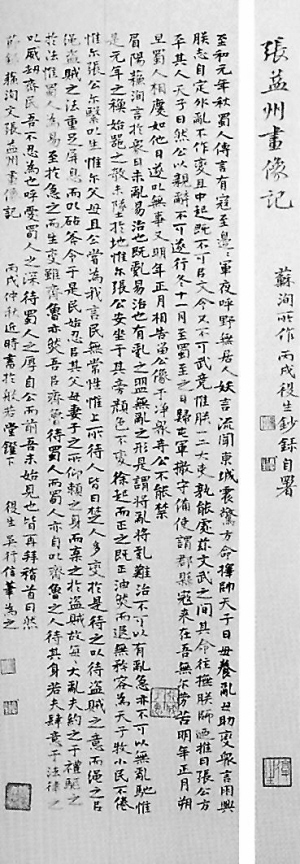 張益州畫像記
蘇洵所作 丙戌後生鈔錄自署
至和元年秋蜀人傳言有寇至邊邊軍夜呼野無居人妖言流聞京城震驚方命擇帥天子曰毋養亂毋助變衆言朋興
朕志自定外亂不作變且中起既不可以文令又不可以武競惟朕一二大吏孰能處茲文武之間其命往撫朕師迺推曰張公方
平其人天子曰然公以親辭不可遂行冬十一月至蜀至之日歸屯軍撤守備使謂郡縣寇來在吾無爾勞苦明年正月朔
旦蜀人相慶如他日遂以無事又明年正月相告留公像于淨衆寺公不能禁
眉陽蘇洵言於衆曰未亂易治也既亂易治也有亂之萌無亂之形是謂將亂將亂難治不可以有亂急亦不可以無亂弛惟
是元年之秋如器之欹未墜於地惟爾張公安坐于其旁顏色不變徐起而正之既正油然而退無矜容為天子牧小民不倦
惟爾張公爾繄以生惟爾父母且公嘗為我言民無常性惟上所待人皆曰蜀人多變於是待之以待盜賊之意而繩之以
繩盜賊之法重足屏息之民而以砧斧令於是民始忍以其父母妻子之所仰賴之身而棄之於盜賊故每每大亂夫約之于禮驅之
於法惟蜀人為易至於急之而生變雖齊魯亦然吾以齊魯待蜀人而蜀人亦自以齊魯之人待其身若夫肆意于法律之
以威劫齊民吾不忍為也嗚呼愛蜀人之深待蜀人之厚自公而前吾未始見也皆再拜稽首曰然
節錄蘇洵文張益州畫像記 丙戌仲秋近時書於般若堂鐙下 後生吳行信筆為之